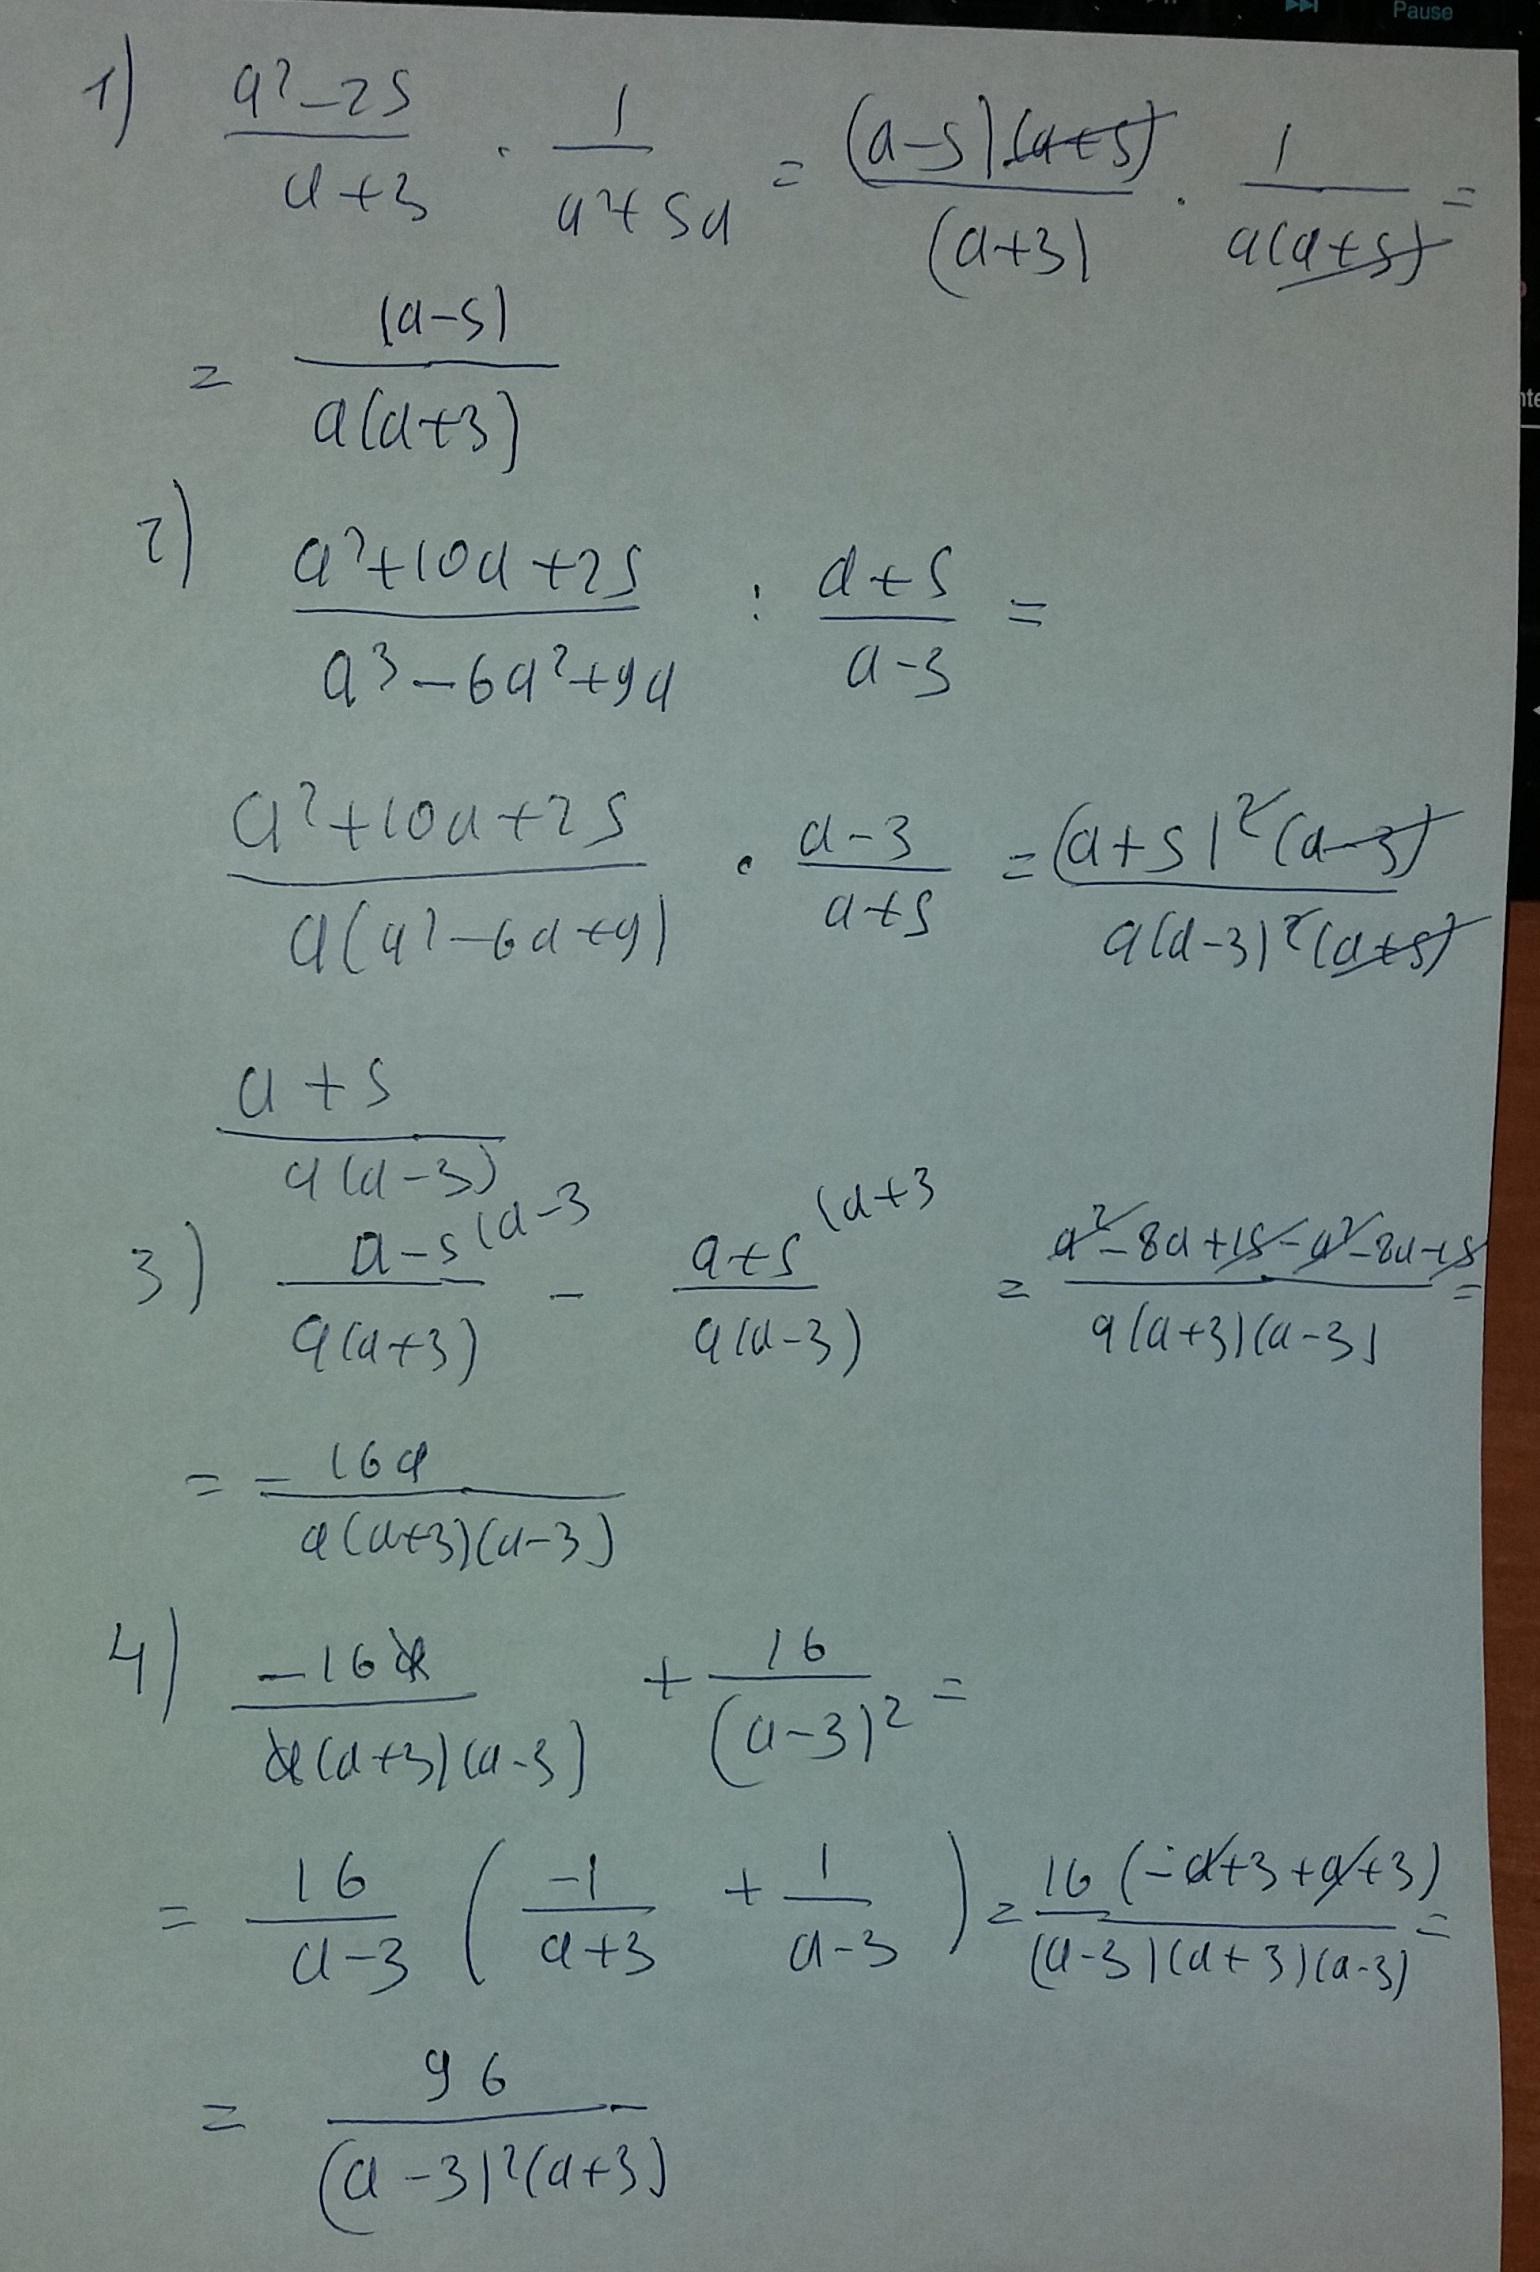 Pause
1) (a²-25)/(a+3) · 1/(a²+5a) = (a-5)(a+5)/(a+3) · 1/(a(a+5)) =
= (a-5)/(a(a+3))
2) (a²+10a+25)/(a³-6a²+9a) : (a+5)/(a-3) =
(a²+10a+25)/(a(a²-6a+9)) · (a-3)/(a+5) = (a+5)²(a-3)/(a(a-3)²(a+5))
(a+5)/(a(a-3))
3) (a-5)/(a(a+3)) (a-3 - (a+5)/(a(a-3)) (a+3 = (a²-8a+15-a²-8a-15)/(a(a+3)(a-3)) =
= -16a/(a(a+3)(a-3))
4) -16a/(a(a+3)(a-3)) + 16/(a-3)² =
= 16/(a-3) (-1/(a+3) + 1/(a-3)) = 16(-a+3+a+3)/((a-3)(a+3)(a-3)) =
= 96/((a-3)²(a+3))